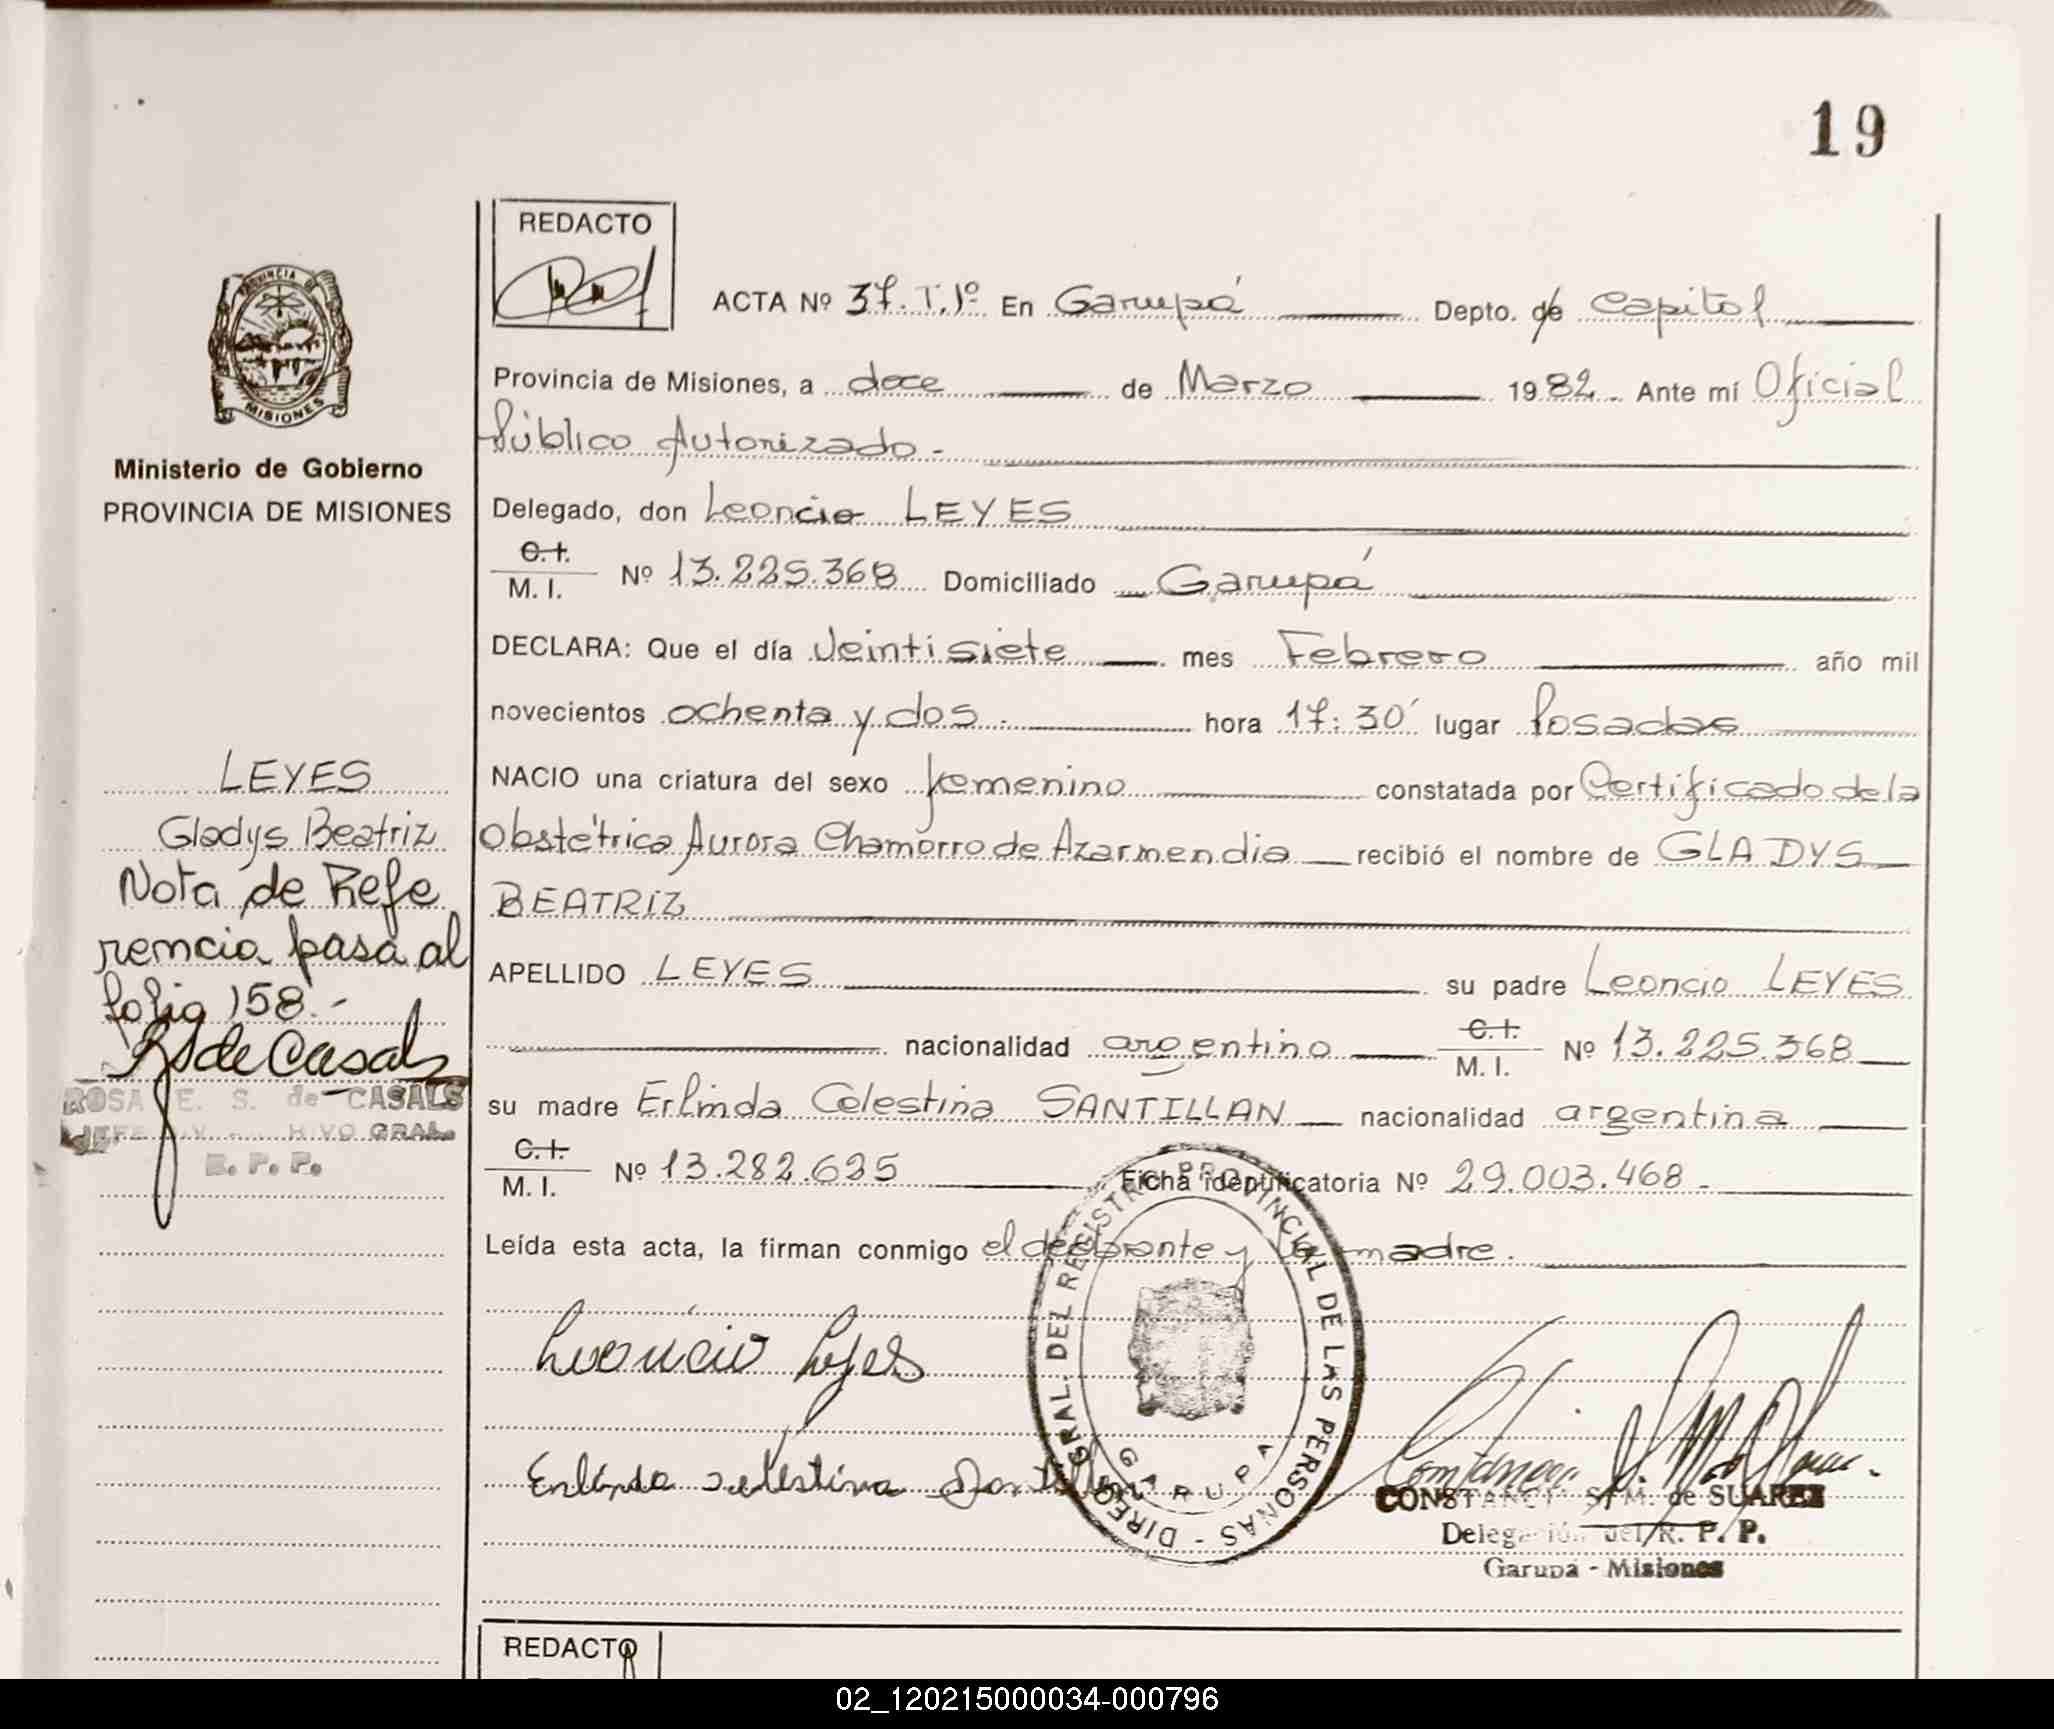 19
REDACTO
ACTA Nº 37. T.1º En Garupá Depto. de Capital
Provincia de Misiones, a doce de Marzo 1982. Ante mí Oficial
Público Autorizado.-
Delegado, don Leoncio LEYES
C.I.
M. I. Nº 13.225.368 Domiciliado Garupá
DECLARA: Que el día Veintisiete mes Febrero año mil
novecientos ochenta y dos.- hora 17:30´ lugar Posadas
NACIO una criatura del sexo femenino constatada por Certificado de la
Obstétrica Aurora Chamorro de Azarmendia recibió el nombre de GLADYS
BEATRIZ
APELLIDO LEYES su padre Leoncio LEYES
nacionalidad argentino C.I.
M. I. Nº 13.225.368
su madre Erlinda Celestina SANTILLAN nacionalidad argentina
C.I.
M. I. Nº 13.282.635 Ficha identificatoria Nº 29.003.468.-
Leída esta acta, la firman conmigo el declarante y la madre.
PROVINCIA DE
MISIONES
Ministerio de Gobierno
PROVINCIA DE MISIONES
LEYES
Gladys Beatriz
Nota de Refe
rencia pasa al
folio 158.-
R S de Casals
ROSA E. S. de CASALS
JEFE GRAL.
R. P. P.
Leoncio Leyes
Erlinda Celestina
DIREC. GRAL. DEL REGISTRO PROVINCIAL DE LAS PERSONAS -
GARUPA
CONSTANCIA S. M. de SUAREZ
Delegación del R. P. P.
Garupa - Misiones
REDACTO
02_120215000034-000796